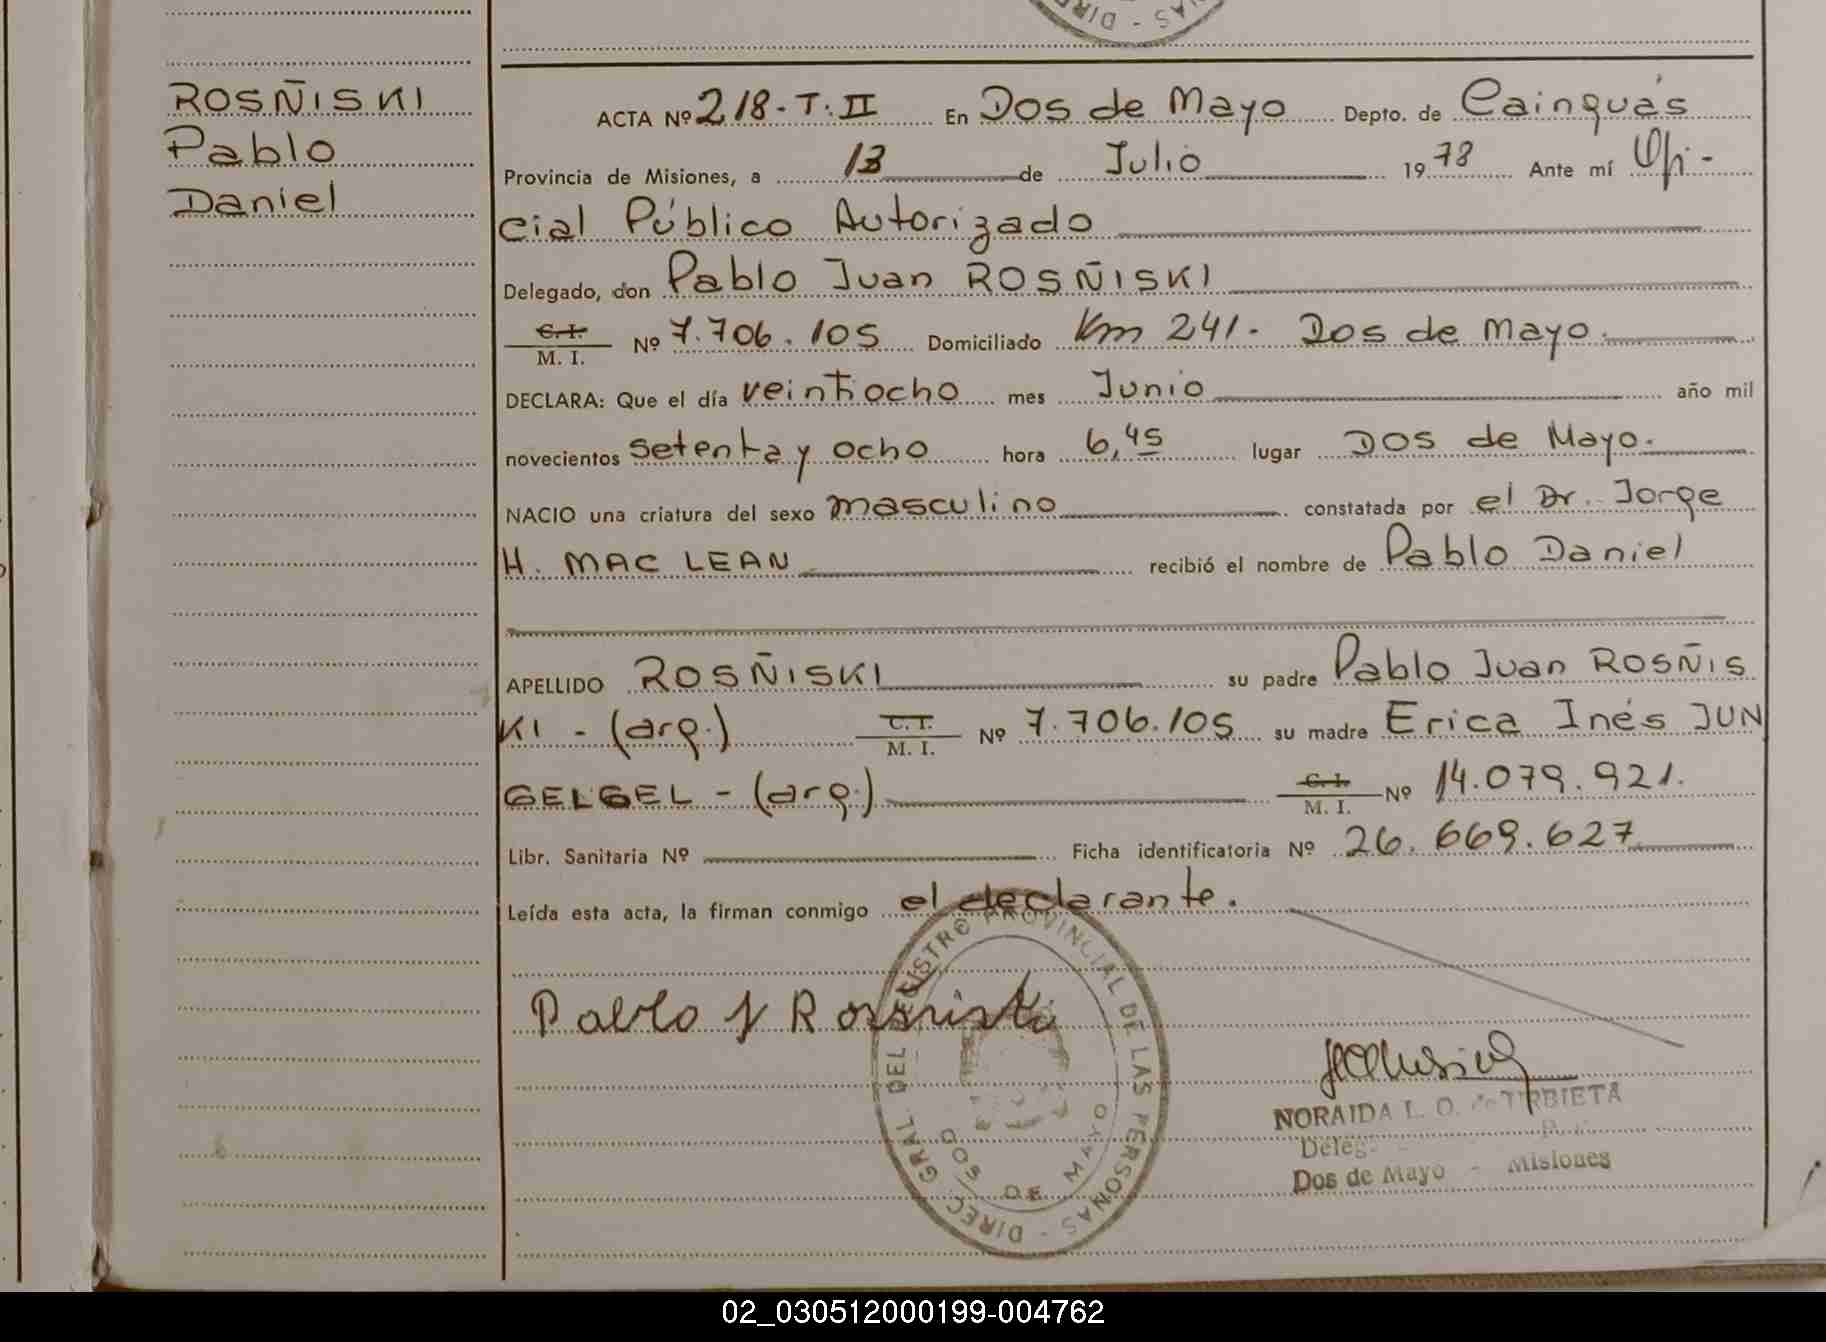 ROSÑISKI
Pablo
Daniel
DIREC
ACTA Nº 218-T. II En Dos de Mayo Depto. de Cainguás
Provincia de Misiones, a 13 de Julio 1978 Ante mí Ofi-
cial Público Autorizado
Delegado, don Pablo Juan ROSÑISKI
C. I. / M. I. Nº 7.706.105 Domiciliado Km 241. Dos de Mayo.
DECLARA: Que el día veintiocho mes Junio año mil
novecientos setenta y ocho hora 6,45 lugar Dos de Mayo.
NACIO una criatura del sexo masculino constatada por el Dr. Jorge
H. MAC LEAN recibió el nombre de Pablo Daniel
APELLIDO ROSÑISKI su padre Pablo Juan ROSÑIS
KI - (arg.) C. I. / M. I. Nº 7.706.105 su madre Erica Inés JUN
GELGEL - (arg.) C. I. / M. I. Nº 14.079.921.
Libr. Sanitaria Nº Ficha identificatoria Nº 26.669.627
Leída esta acta, la firman conmigo el declarante.
DIREC GRAL. DEL REGISTRO PROVINCIAL DE LAS PERSONAS -
DOS DE MAYO
Pablo J Rosñiski
NORAIDA L. O. de URBIETA
Deleg.
Dos de Mayo - Misiones
02_030512000199-004762